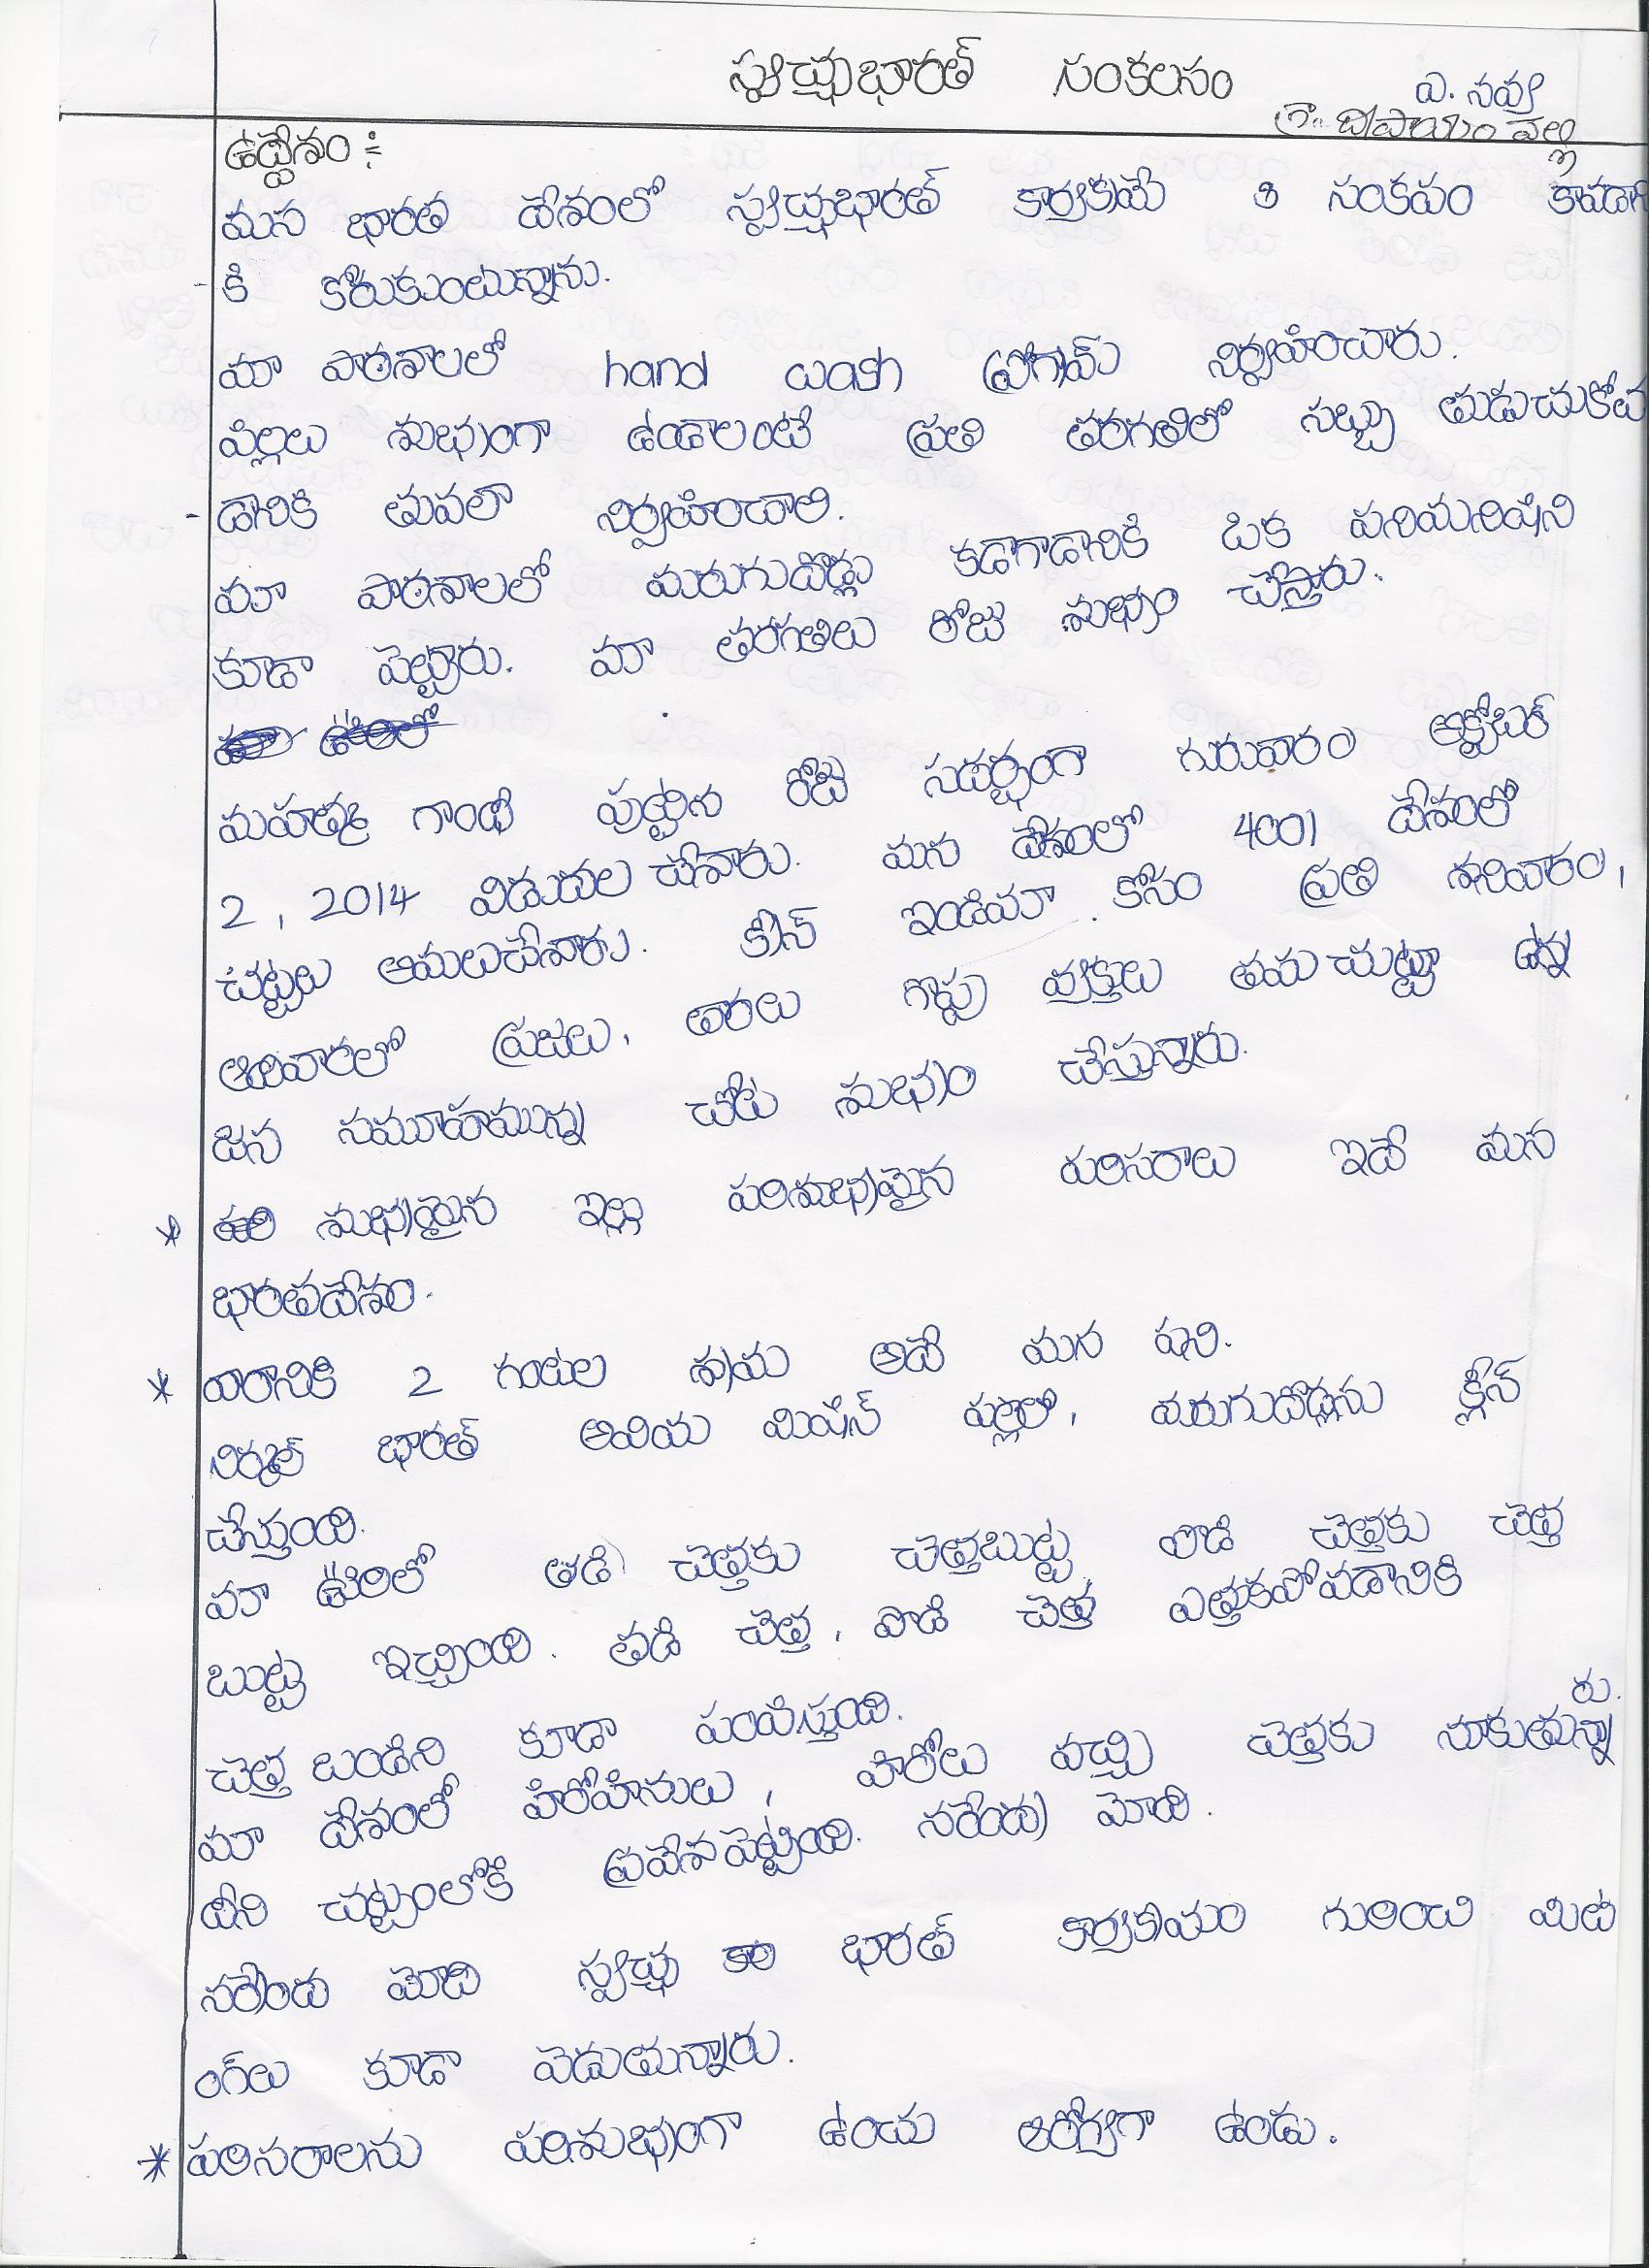 స్వచ్ఛభారత్ సంకలనం
ఎ. నవ్య
గ్రా.. రాపాయం పల్లి
ఉద్దేశం :-
మన భారత దేశంలో స్వచ్ఛభారత్ కార్యక్రమే కి సంకపం కావడాని
- కి కోరుకుంటున్నాను.
మా పాఠశాలలో hand wash ప్రోగ్రామ్ నిర్వహించారు.
పిల్లలు శుభ్రంగా ఉండాలంటే ప్రతి తరగతిలో సబ్బు తుడుచుకోవ
- డానికి తువలా నిర్వహించాలి.
మా పాఠశాలలో మరుగుదొడ్లు కడాగాడానికి ఒక పనిమనిషిని
కూడా పెట్టారు. మా తరగతిలు రోజు శుభ్రం చేస్తారు.
మహత్మ గాంధీ పుట్టిన రోజు సదర్భంగా గురువారం అక్టోబర్
2, 2014 విడుదల చేశారు. మన దేశంలో 4001 దేశంలో
చట్టలు అమలుచేశారు. క్లీన్ ఇండియా కోసం ప్రతి శనివారం,
ఆదివారలో ప్రజలు, తారలు గొప్ప వ్యక్తులు తమ చుట్టూ ఉన్న
జన సమూహమున్న చోట శుభ్రం చేస్తున్నారు.
* శుభ్రమైన ఇల్లు పరిశుభ్రమైన పరిసరాలు ఇదే మన
భారతదేశం.
* వారానికి 2 గంటల శ్రమ అదే మన పని.
నిర్మల్ భారత్ అవియ మిషన్ పల్లలో, మరుగుదొడ్లను క్లీన్
చేస్తుంది.
మా ఊరిలో తడి చెత్తకు చెత్తబుట్ట పొడి చెత్తకు చెత్త
బుట్ట ఇచ్చింది. తడి చెత్త, పొడి చెత్త ఎత్తుకపోవడానికి
చెత్త బండిని కూడా పంపిస్తుంది.
మా దేశంలో హీరోహినులు, హీరోలు వచ్చి చెత్తకు నూకుతున్నారు.
దీని చట్టంలోకి ప్రవేశపెట్టింది. నరేంద్ర మోది.
నరేంద్ర మోది స్వచ్ఛ భారత్ కార్యక్రమం గురించి మిట
ంగ్‌లు కూడా పెడుతున్నారు.
* పరిసరాలను పరిశుభ్రంగా ఉంచు ఆరోగ్యగా ఉండు.